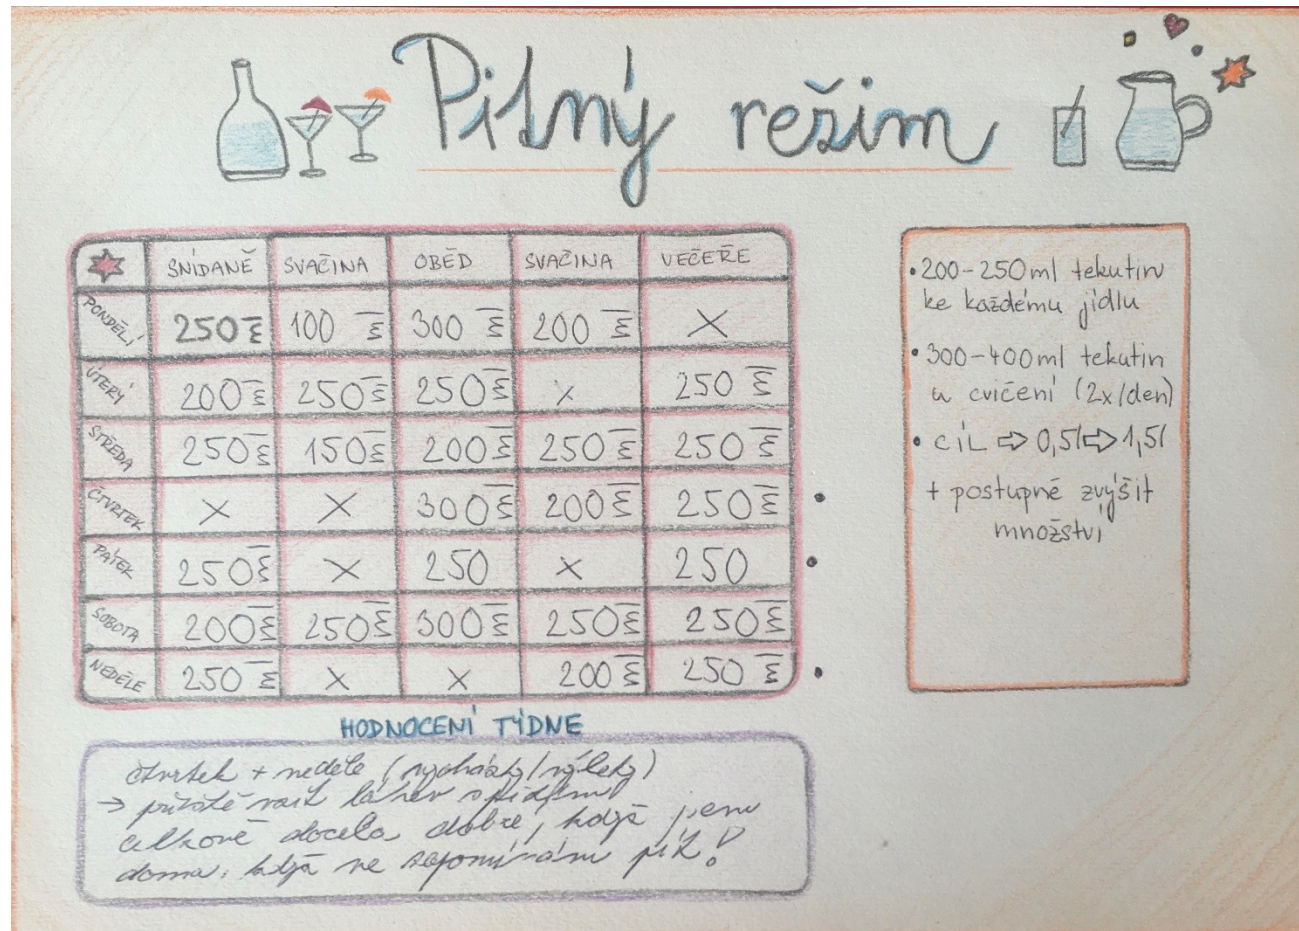 Pitný režim
SNÍDANĚ SVAČINA OBĚD SVAČINA VEČEŘE
PONDĚLÍ 250 ml 100 ml 300 ml 200 ml X
ÚTERÝ 200 ml 250 ml 250 ml X 250 ml
STŘEDA 250 ml 150 ml 200 ml 250 ml 250 ml
ČTVRTEK X X 300 ml 200 ml 250 ml
PÁTEK 250 ml X 250 X 250
SOBOTA 200 ml 250 ml 300 ml 250 ml 250 ml
NEDĚLE 250 ml X X 200 ml 250 ml
• 200-250ml tekutin
ke každému jídlu
• 300-400ml tekutin
u cvičení (2x/den)
• CÍL ⇨ 0,5l ⇨ 1,5l
+ postupně zvýšit
množství
HODNOCENÍ TÝDNE
čtvrtek + neděle (výlety)
→ příště vzít láhev s pitím
celkově docela dobré, když jsem
doma, když ne zapomínám pít!